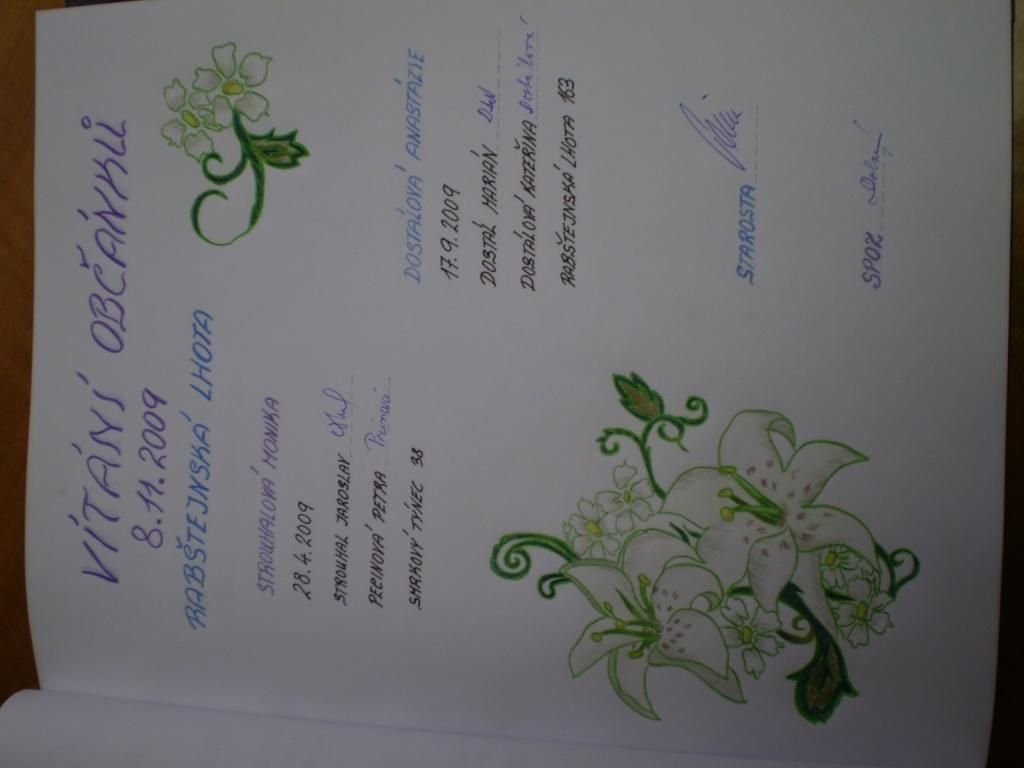 VÍTÁNÍ OBČÁNKŮ
8.11.2009
RABŠTEJNSKÁ LHOTA
STROUHALOVÁ MONIKA
28.4.2009
STROUHAL JAROSLAV
PECINOVÁ PETRA Pecinová
SMRKOVÝ TÝNEC 38
DOSTÁLOVÁ ANASTÁZIE
17.9.2009
DOSTÁL MARIÁN
DOSTÁLOVÁ KATEŘINA Dostálová
RABŠTEJNSKÁ LHOTA 163
STAROSTA
SPOZ